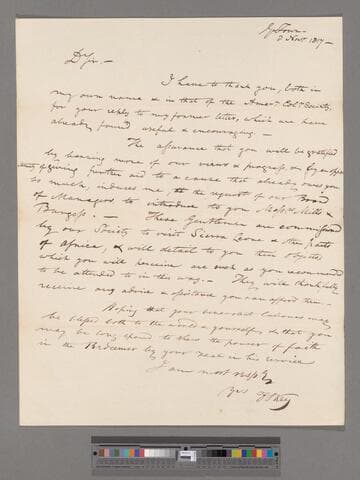 G Town
5 Novr. 1817 —
Dr Sir. —
I have to thank you, both in
my own name & in that of the Amer. Col. Society,
for your reply to my former letter, which we have
already found useful & encouraging. —
The assurance that you will be gratified
by hearing more of our views & progress, an
of giving further aid to a cause that already owes you
so much, induces me, at the request of our Board
of Managers to introduce to you Messrs. Mills &
Burgess. — These Gentlemen are commissioned
by our Society to visit Sierra Leone & other parts
of Africa, & will detail to you their objects
which you will perceive are such as you recommend
to be attended to in this way. — They will thankfully
receive any advice & assistance you can afford them.
Hoping that your benevolent labours may
be blessed both to the world & yourself, & that you
may be long spared to shew the power of faith
in the Redeemer by your zeal in his service
I am most resply
Yrs F S Key